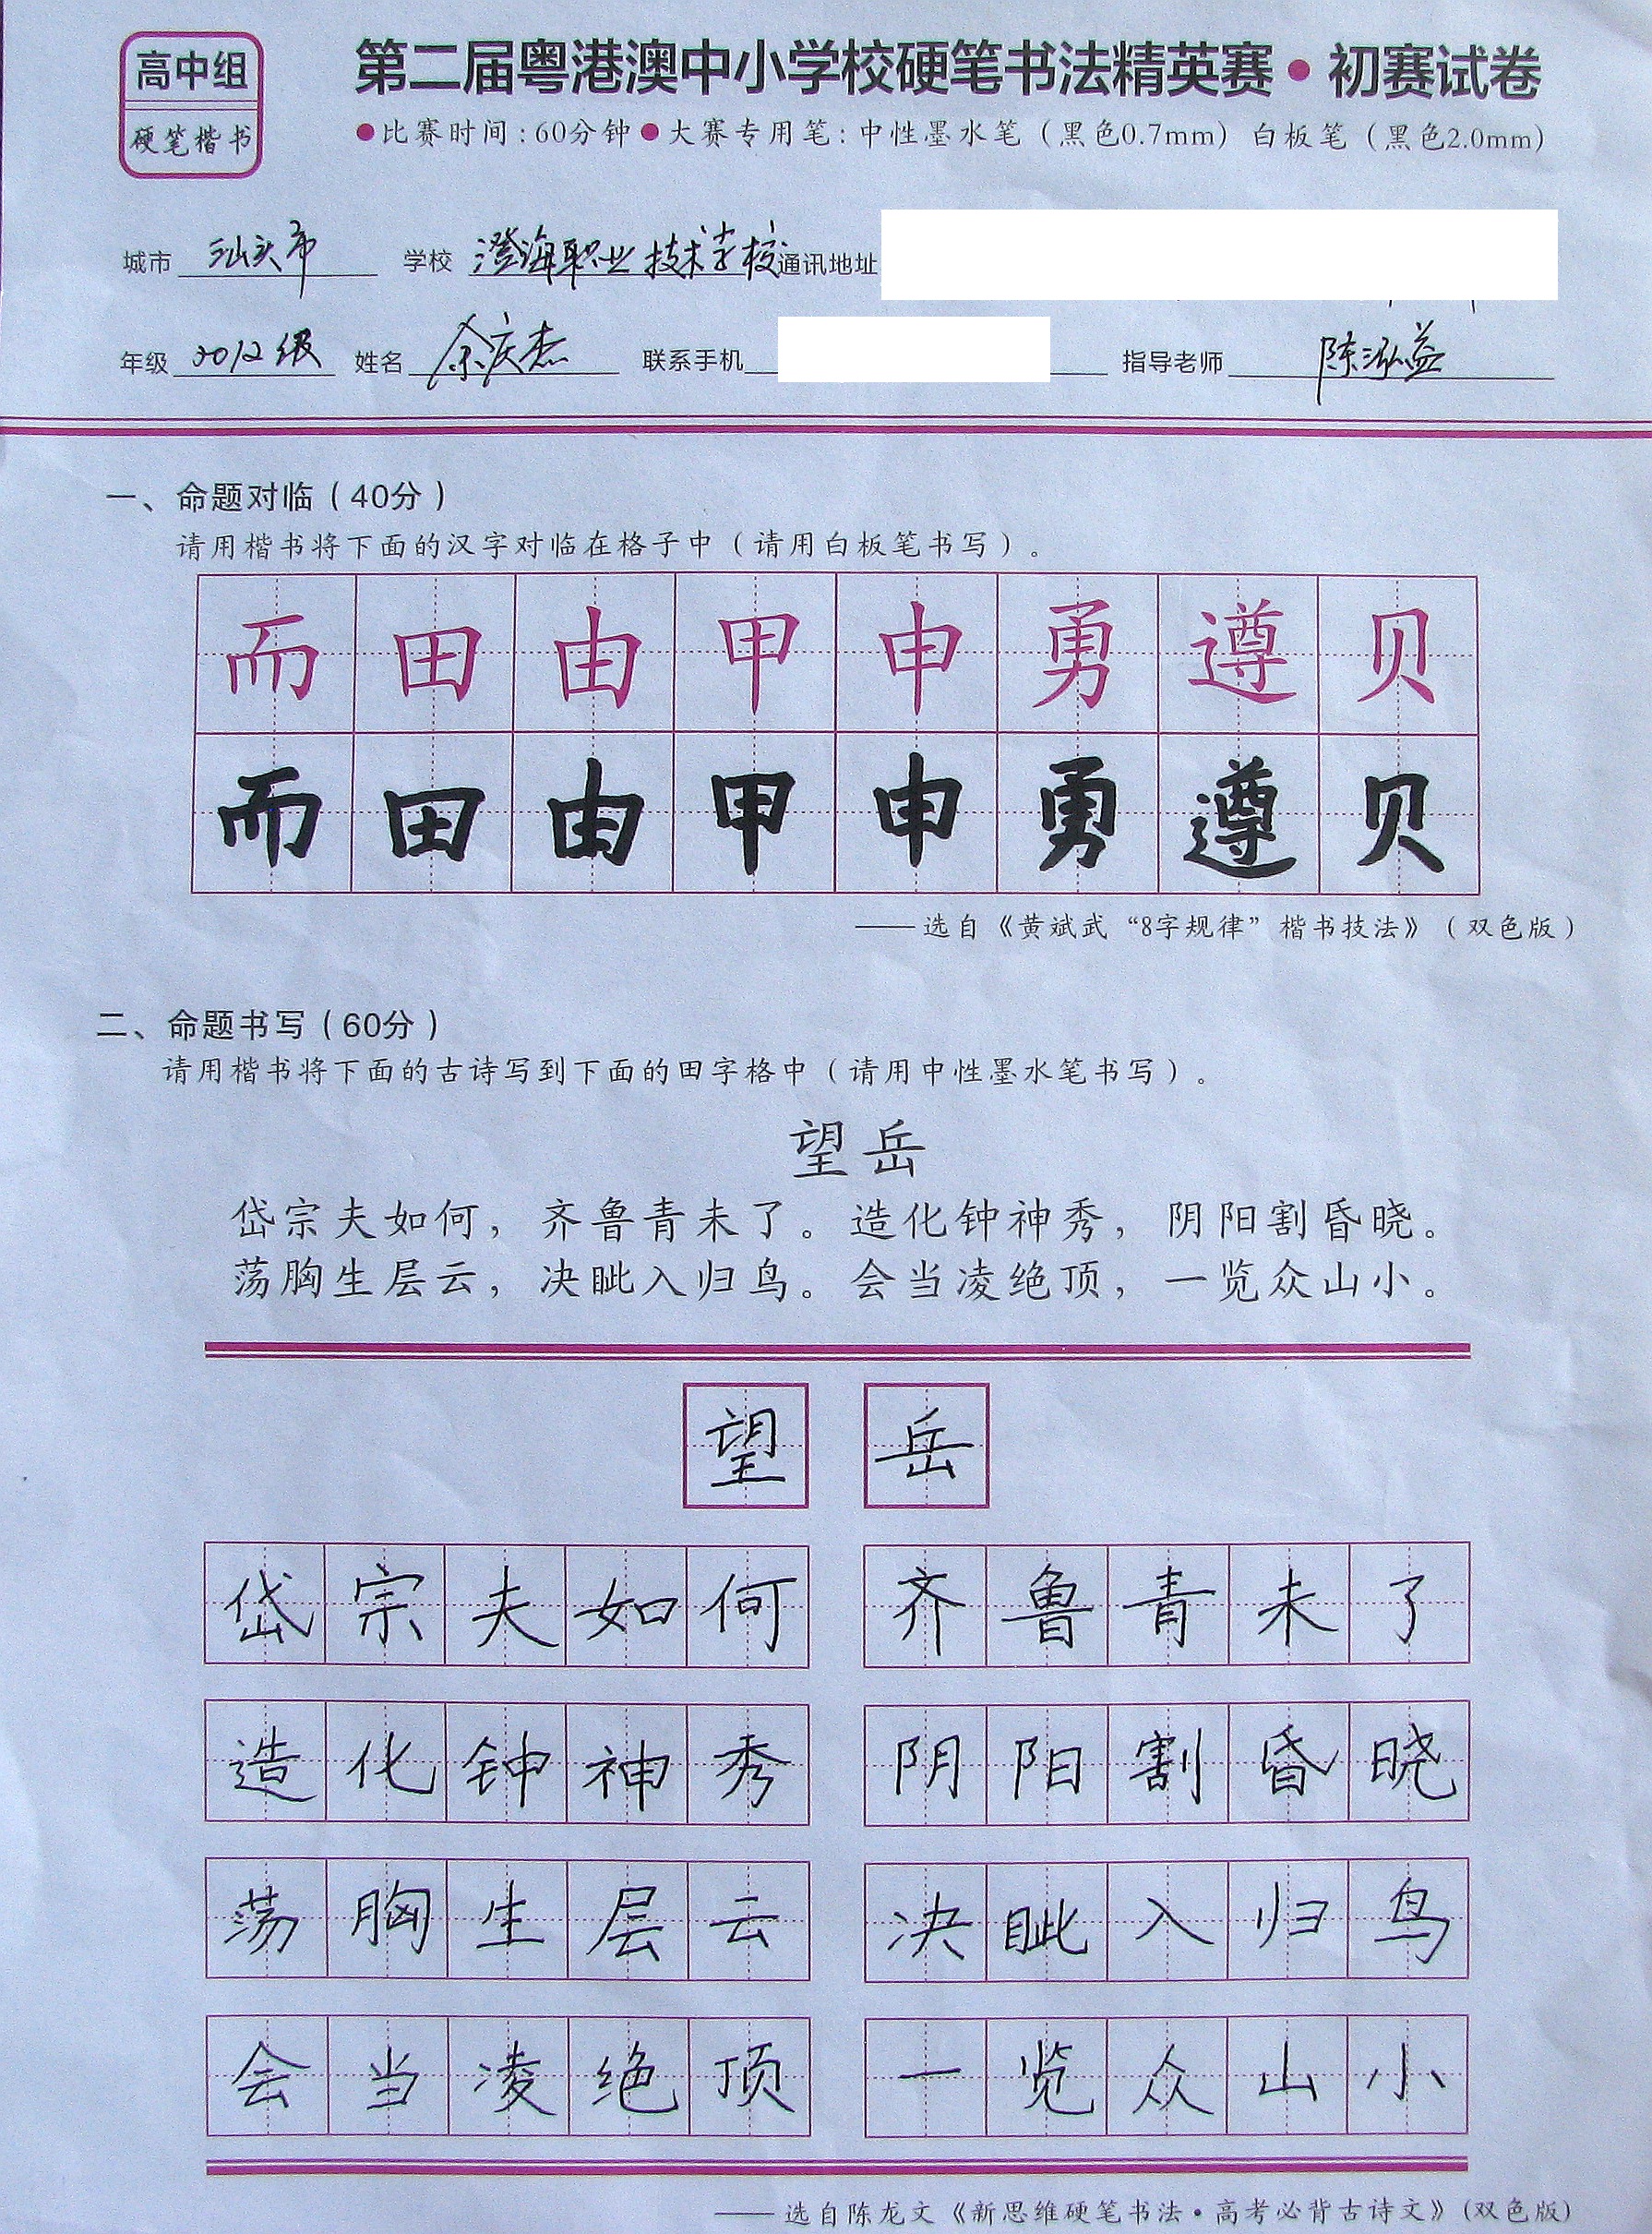 高中组
硬笔楷书
第二届粤港澳中小学校硬笔书法精英赛•初赛试卷
●比赛时间:60分钟●大赛专用笔:中性墨水笔(黑色0.7mm) 白板笔(黑色2.0mm)
城市 汕头市 学校 澄海职业技术学校 通讯地址
年级 2012级 姓名 余庆杰 联系手机 指导老师 陈泓益
一、命题对临(40分)
请用楷书将下面的汉字对临在格子中(请用白板笔书写)。
而田由甲申勇遵贝
而田由甲申勇遵贝
——选自《黄斌武“8字规律”楷书技法》(双色版)
二、命题书写(60分)
请用楷书将下面的古诗写到下面的田字格中(请用中性墨水笔书写)。
望岳
岱宗夫如何，齐鲁青未了。造化钟神秀，阴阳割昏晓。
荡胸生层云，决眦入归鸟。会当凌绝顶，一览众山小。
望岳
岱宗夫如何 齐鲁青未了
造化钟神秀 阴阳割昏晓
荡胸生层云 决眦入归鸟
会当凌绝顶 一览众山小
——选自陈龙文《新思维硬笔书法•高考必背古诗文》(双色版)